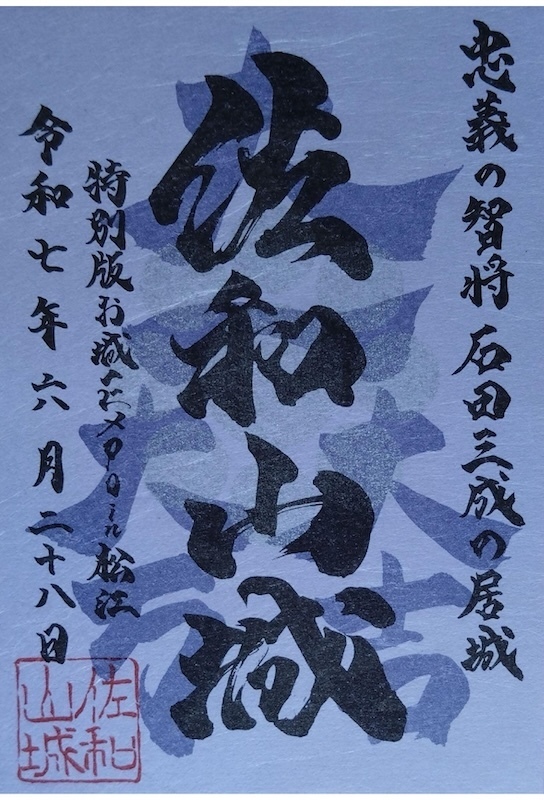 忠義の智将 石田三成の居城
佐和山城
特別版お城EXPO in 松江
令和七年六月二十八日
佐和
山城
大一大万大吉